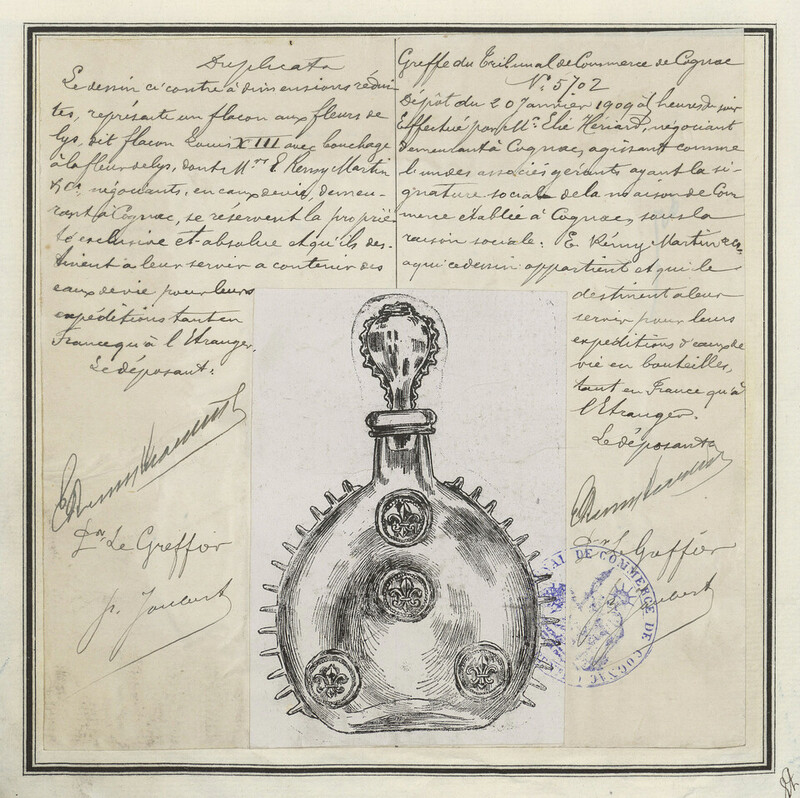 Duplicata
Le dessin ci contre à dimensions rédui-
tes, représente un flacon aux fleurs de
lys, dit flacon Louis XIII avec bouchage
à la fleur de lys, dont Mrs E. Remy Martin
& Co, négociants, en eaux de vie, demeu-
rant à Cognac, se réservent la proprié-
té exclusive et absolue et qu'ils des-
tinent à leur servir a contenir des
eaux de vie pour leurs
expéditions tant en
France qu'à l'Etranger.
Le déposant:
E. Remy Martin & Co
Le Greffier
J. Joubert
Greffe du Tribunal de Commerce de Cognac
No 5702
Dépôt du 20 Janvier 1909 à heures du soir
Effectué par Mr. Elie Hériard, négociant
demeurant à Cognac, agissant comme
l'un des associés gérants ayant la si-
gnature sociale de la maison de Com-
merce établie à Cognac, sous la
raison sociale: E. Rémy Martin & Co.
a qui ce dessin appartient et qui le
destinent a leur
servir pour leurs
expéditions d'eaux de
vie en bouteilles,
tant en France qu'à
l'Etranger.
Le déposant
E. Remy Martin
Le Greffier
Joubert
DE COMMERCE DE COGNAC